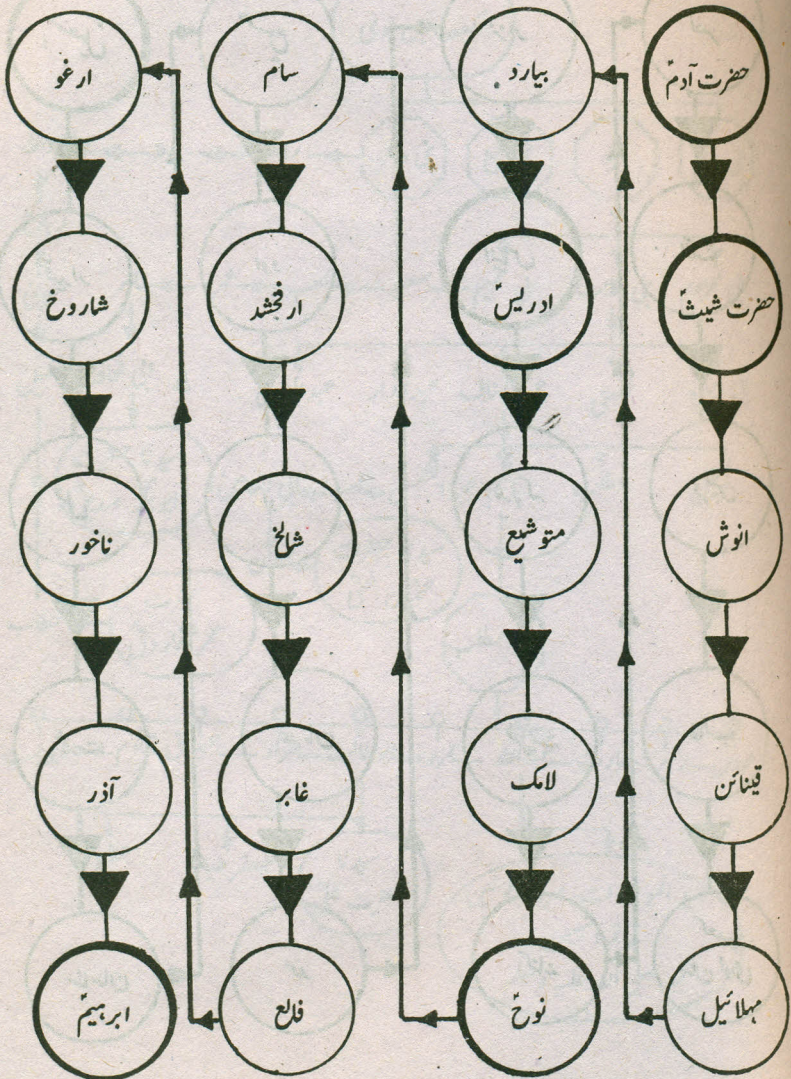 حضرت آدمؑ
حضرت شیثؑ
انوش
قینائن
مہلائیل
بیارد
ادریسؑ
متوشیع
لامک
نوحؑ
سام
ارفخشد
شالخ
غابر
فالع
ارغو
شاروخ
ناخور
آذر
ابرہیمؑ